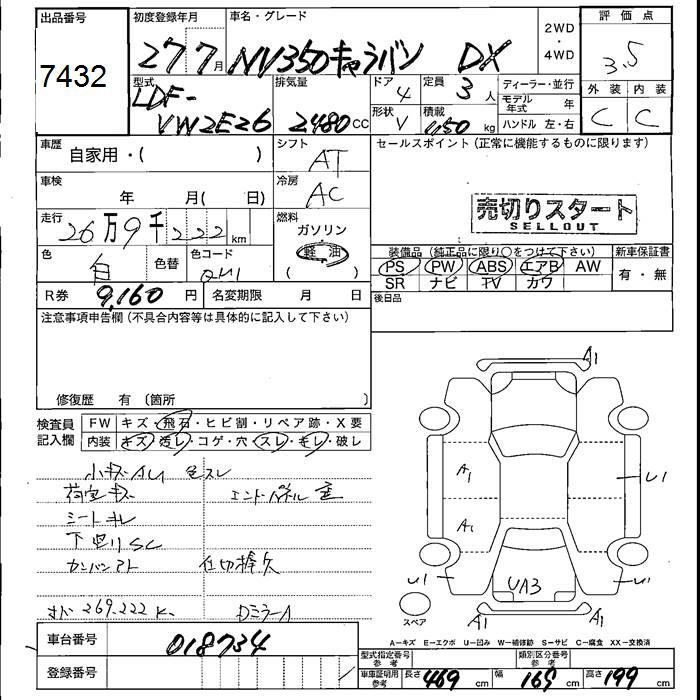 出品番号 初度登録年月 車名・グレード 2WD・4WD 評価点
7432 27 7月 NV350キャラバン DX 3.5
型式 LDF-VW2E26 排気量 2480cc ドア 4 定員 3人 ディーラー・並行 外装 内装
形状 V 積載 kg モデル年式 年 C C
ハンドル 左・右
車歴 自家用・( ) シフト AT セールスポイント(正常に機能するものに限ります)
車検 年 月( 日) 冷房 AC
売切りスタート
SELLOUT
走行 26万9千222km 燃料 ガソリン
軽油
( )
色 白 色替 色コード QM1
装備品(純正品に限り○をつけて下さい) 新車保証書
PS PW ABS エアB AW 有・無
SR ナビ TV カワ
R券 9,160円 名変期限 月 日 後日品
注意事項申告欄(不具合内容等は具体的に記入して下さい)
修復歴 有 〔箇所 〕
検査員記入欄 FW キズ・飛石・ヒビ割・リペア跡・X要
内装 キズ・汚レ・コゲ・穴・スレ・キレ・破レ
小キズAU 色スレ
荷室キズ エンドパネル歪
シートキレ
下回りSC
カンバンアト
269.222K DミラーA
A1
A1 U1
A1
U1 UA3 U1
スペア A1 A1
A-キズ E-エクボ U-凹み W-補修跡 S-サビ C-腐食 XX-交換済
車台番号 018734
登録番号
型式指定番号 参考 類別区分番号 参考
車庫証明用 参考 長さ 469cm 幅 169cm 高さ 199cm